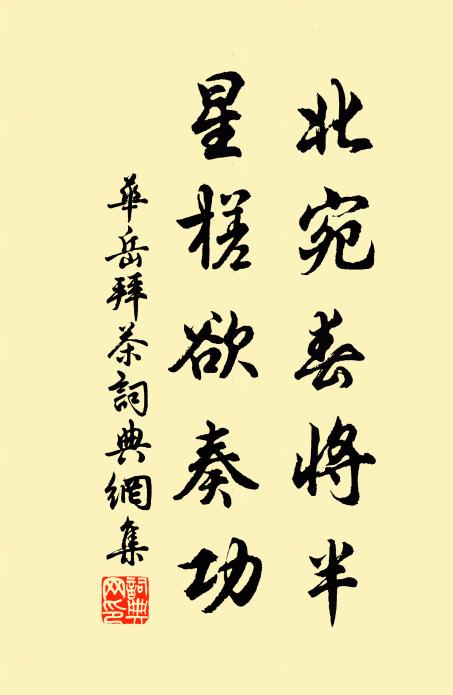 北宛春將半
星槎欲奏功
華岳拜茶詞典網集
詞典
网印